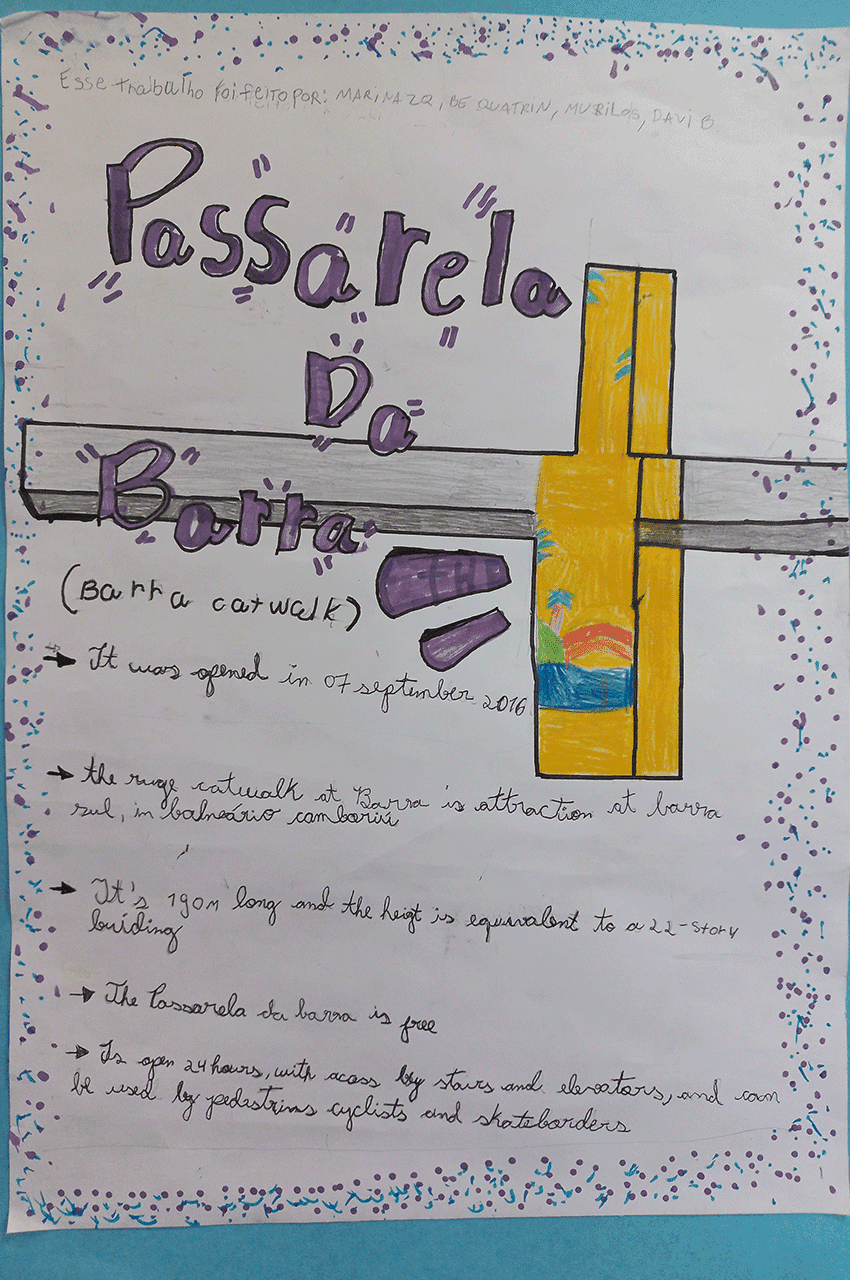 Esse trabalho foi feito por: MARINA ZQ, BE QUATRIN, MURILOS, DAVI B
Passarela
Da
Barra
(Barra catwalk)
→ It was opened in 07 september 2016
→ the ruge catwalk at Barra is attraction at barra
sul, in balneário camboriú
→ It's 190m long and the heigt is equivalent to a 22-story
buiding
→ The Passarela da barra is free
→ Is open 24 hours, with acass by stairs and elevators, and can
be used by pedestrins cyclists and skateborders